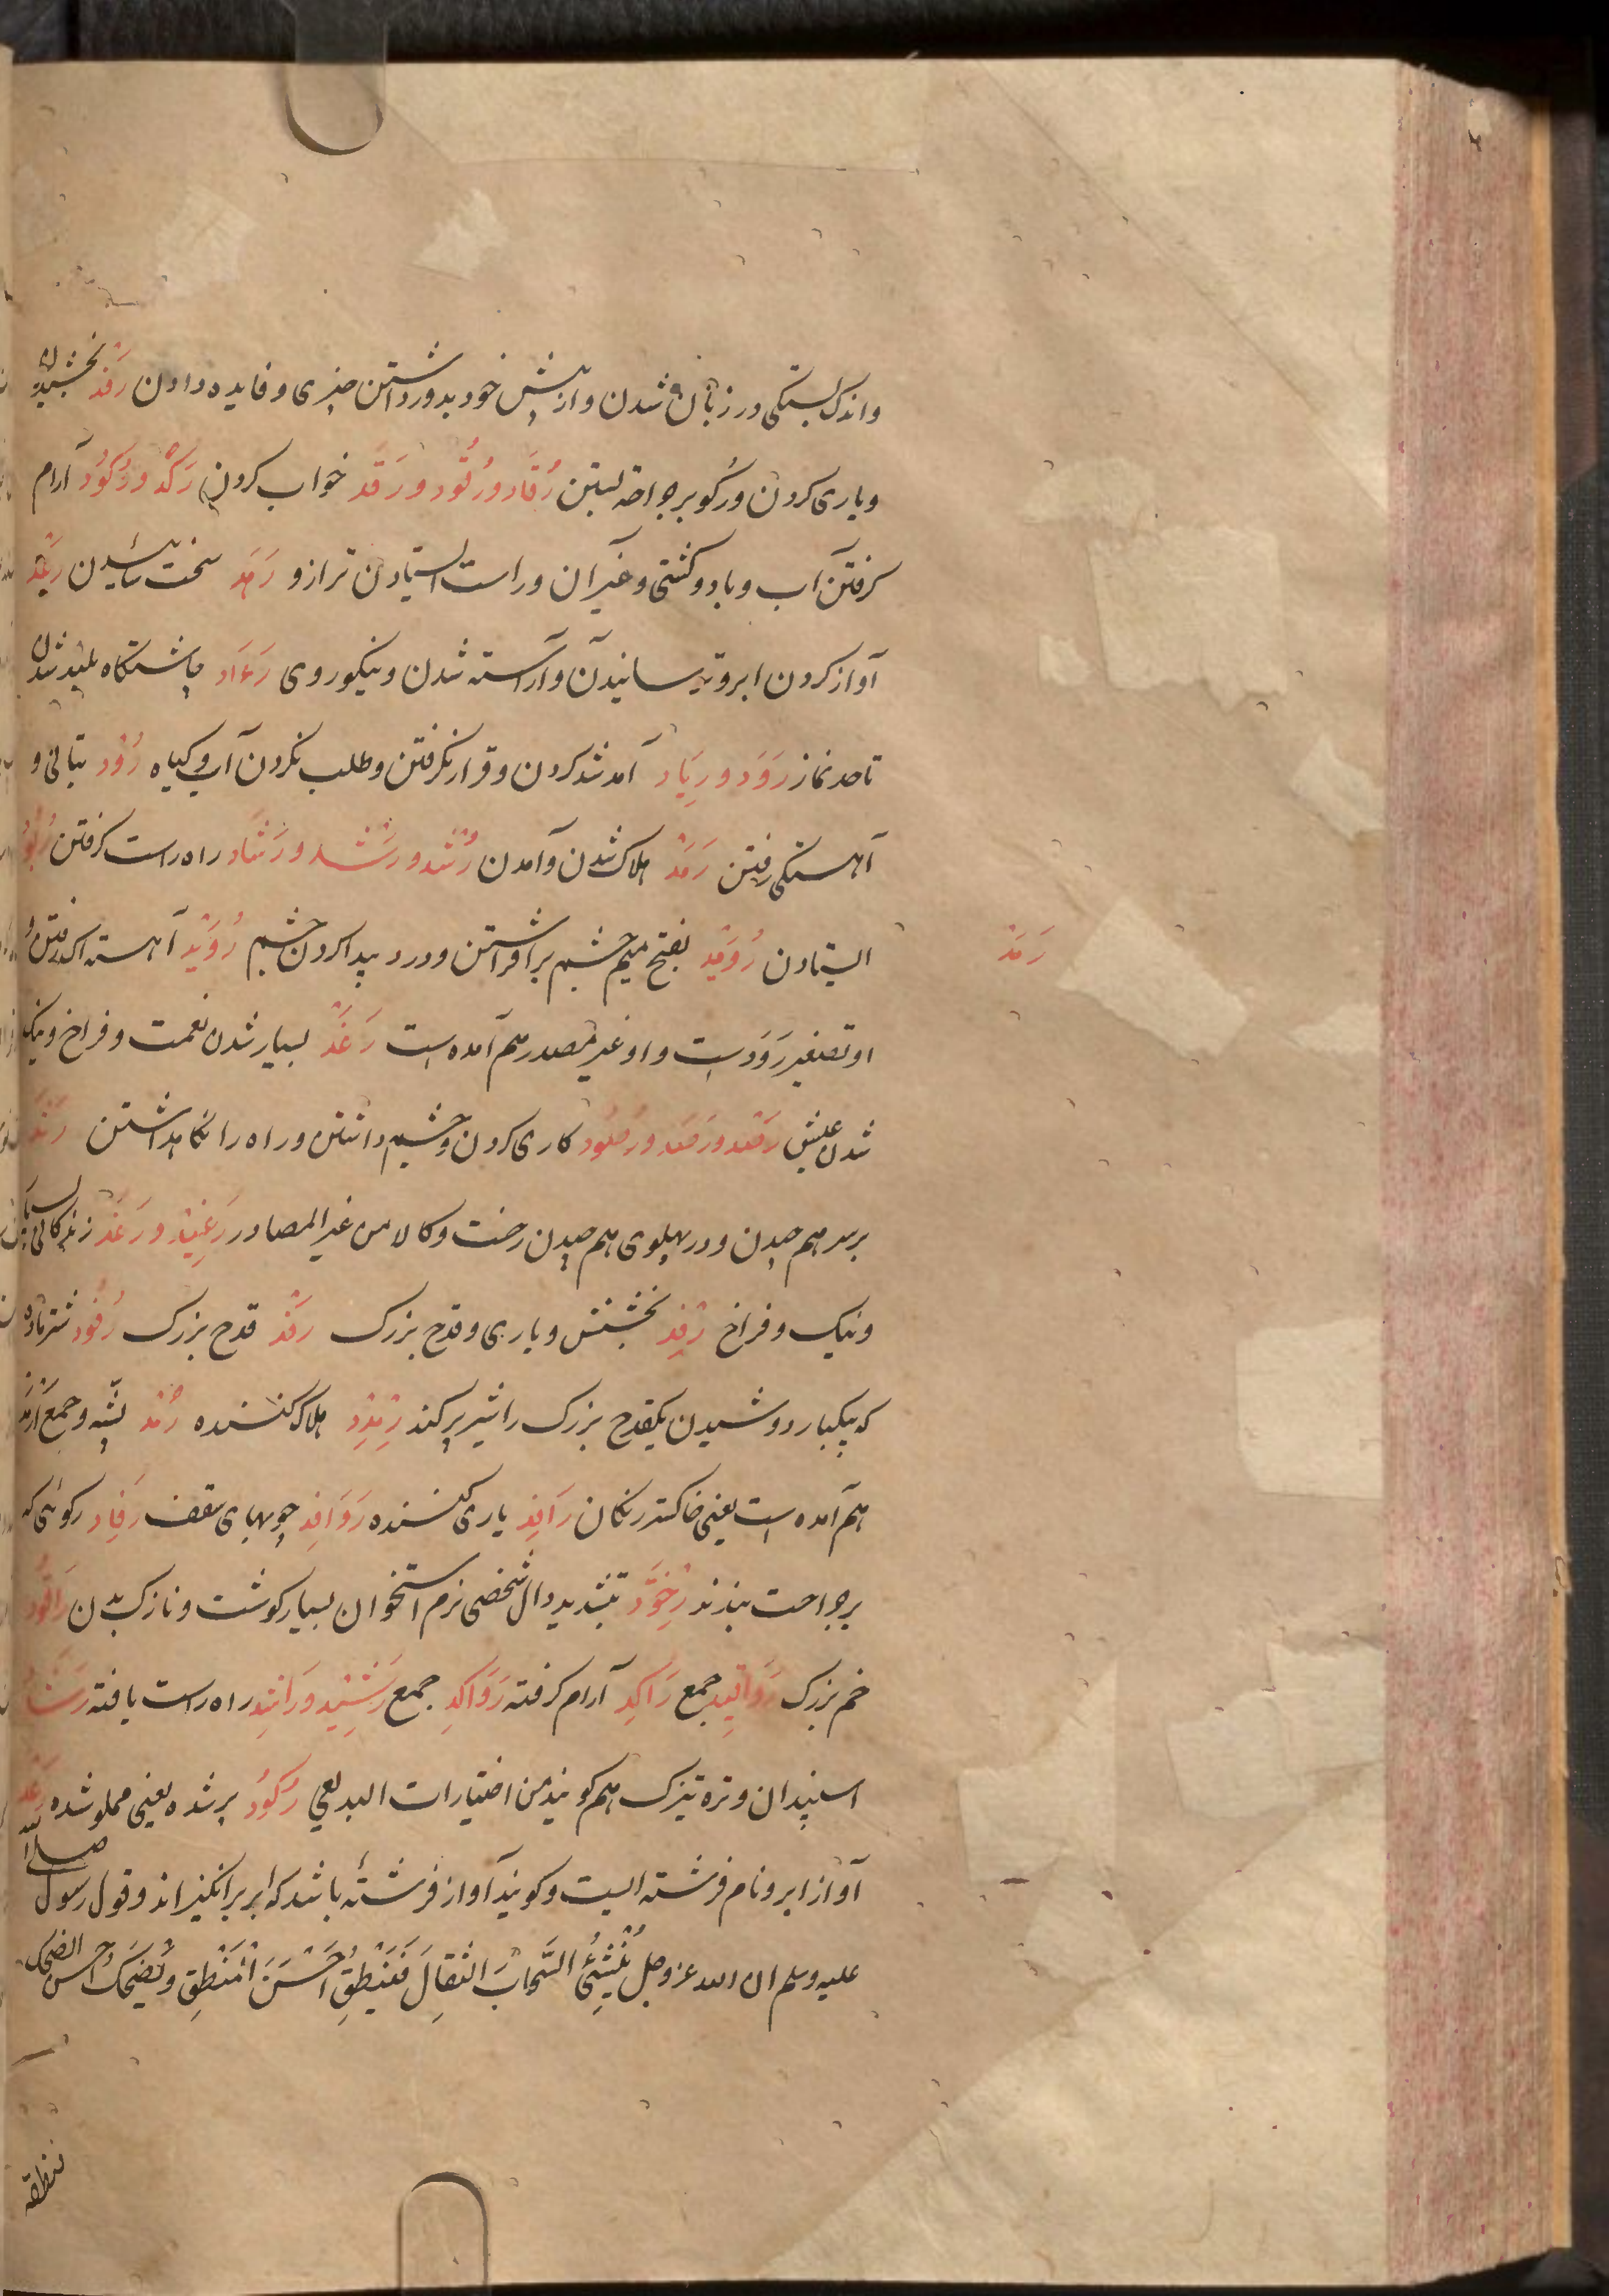 و اندک بستگی در زبان شدن و از پیش خود بدور داشتن چیزی و فایده دادن رَفْد بخشیدن
و یاری کردن و رکو بر جراحة بستن رُقَاد و رُقُود و رَقْد خواب کردن رَكْد و رُكُود آرام
گرفتن آب و باد و کشتی و غیر آن و راست ایستادن ترازو رَهْد سخت سائیدن رَعْد
آواز کردن ابر و ترسانیدن و آراسته شدن و نیکو روی رَءَاد چاشتگاه بلند شدن
تا حد نماز رَوَد و رِیَاد آمد شد کردن و قرار نگرفتن و طلب کردن آب و گیاه رُوْد بتانی و
آهستگی رفتن رَمْد هلاک شدن و آمدن رُشْد و رَشَد و رَشَاد راه راست گرفتن
ایستادن رُوَیْد بفتح میم چشم برافراشتن و درد پیدا کردن چشم رُوَیْد آهسته
رَمَد
او تصغیر رَوَد است و او غیر مصدر هم آمده است رَغَد بسیار شدن نعمت و فراخ و نیک
شدن عیش رَصْد و رَصَد و رُصُود کاری کردن و چشم داشتن و راه را نگاهداشتن رَثْد
بر سر هم چیدن و در پهلوی هم چیدن رخت و کالا من غیر المصادر رَغِیْد و رَغَد زندگانی
و نیک و فراخ رِفْد بخشش و یاری و قدح بزرگ رَفْد قدح بزرگ رُفُود شتر ماده
که بیکبار دوشیدن یکقدح بزرگ را شیر پر کند رِمْدِد هلاک کننده رُمْد پشه و جمع اَرْمَد
هم آمده است یعنی خاکستر رنگان رَافِد یاری کننده رَوَافِد چوبهای سقف رِفَاد رکوئی که
بر جراحت بندند رِخْوَدّ بتشدید دال شخصی نرم استخوان بسیار گوشت و نازک بدن رَاقُود
خم بزرگ رَوَاقِید جمع رَاكِد آرام گرفته رَوَاكِد جمع رَشِیْد و رَاشِد راه راست یافته رَشَاد
اسپندان و تره تیزک هم گویند من اختیارات البدیعی رَكُود پر شده یعنی مملو شده رَعْد
آواز ابر و نام فرشته ایست و گویند آواز فرشته باشد که ابر برانگیزاند و قول رسول صلی الله
علیه و سلم ان الله عز و جل یُنْشِئُ السَّحَابَ الثِّقَالَ فَیَنْطِقُ اَحْسَنَ الْمَنْطِقِ وَ یَضْحَكُ احسن الضحک